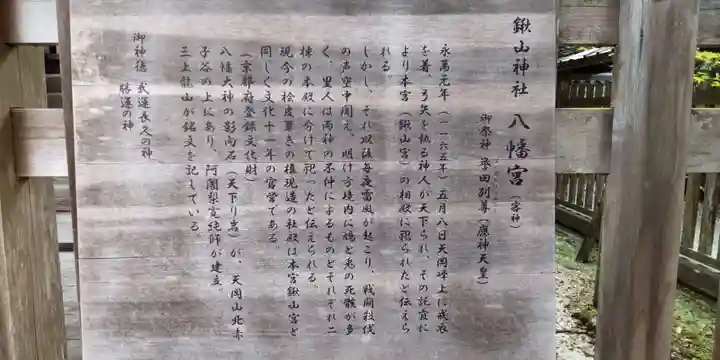 鍬山神社 八幡宮(客神)
御祭神 誉田別尊(應神天皇)
永萬元年(一一六五年)五月八日天岡峰上に戒衣
を着、弓矢を執る神人が天下られ、その託宣に
より本宮(鍬山宮)の相殿に祀られたと伝えら
れる。
しかし、それ以後毎夜雷鳴が起こり、戦闘殺伐
の声空中聞え、明け方境内に鳩と兎の死骸が多
く、里人は両神の不仲によるものとそれぞれ二
棟の本殿に分けて祀ったと伝えられる。
現今の桧皮葺きの権現造の社殿は本宮鍬山宮と
同じく文化十一年の官営である。
(京都府登録文化財)
八幡大神の影向石(天下り岩)が、天岡山北赤
子谷の上にあり、阿闍梨寛純師が建立。
三上龍山が銘文を記えている。
御神徳 武運長久の神
勝運の神